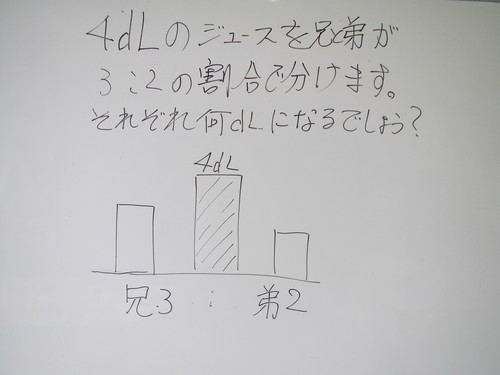 4dLのジュースを兄弟が
3:2の割合で分けます。
それぞれ何dLになるでしょう?
4dL
兄3 : 弟2